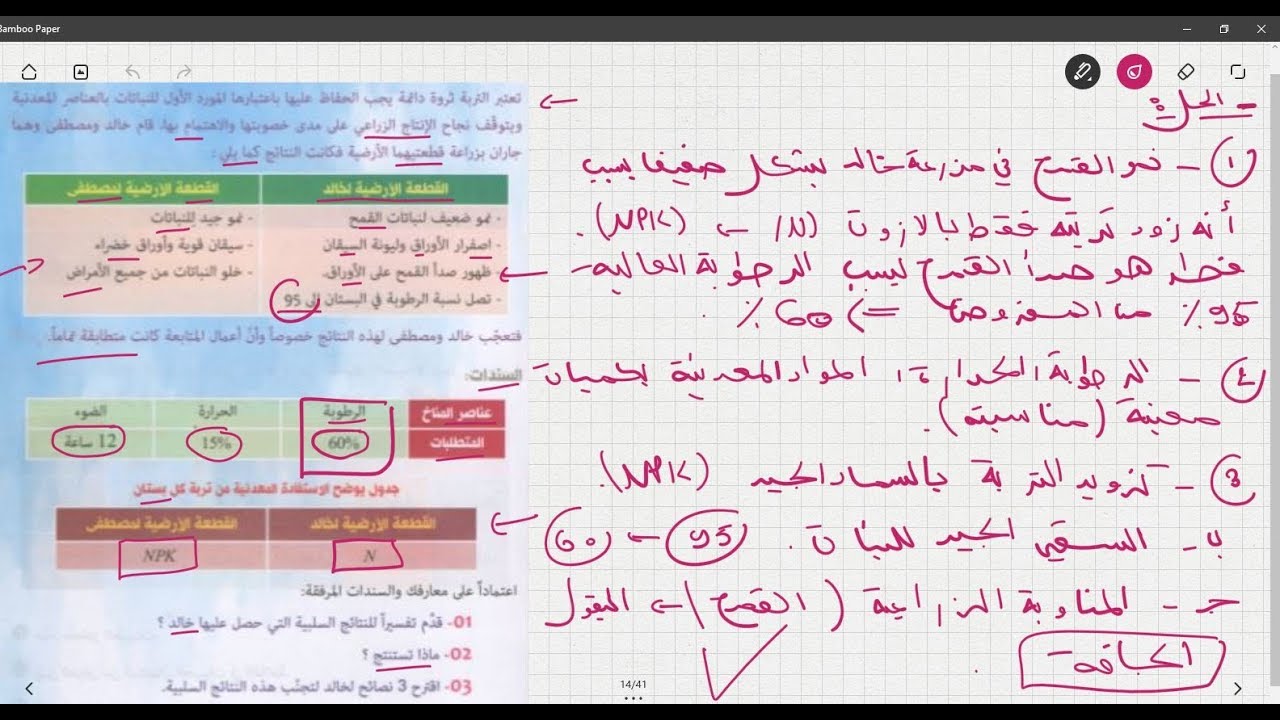 Bamboo Paper
تعتبر التربة ثروة دائمة يجب الحفاظ عليها باعتبارها المورد الأول للنباتات بالعناصر المعدنية
ويتوقف نجاح الإنتاج الزراعي على مدى خصوبتها والاهتمام بها. قام خالد ومصطفى وهما
جاران بزراعة قطعتيهما الأرضية فكانت النتائج كما يلي:
القطعة الأرضية لخالد
القطعة الأرضية لمصطفى
- نمو ضعيف لنباتات القمح
- نمو جيد للنباتات
- اصفرار الأوراق وليونة السيقان
- سيقان قوية وأوراق خضراء
- ظهور صدأ القمح على الأوراق.
- خلو النباتات من جميع الأمراض
- تصل نسبة الرطوبة في البستان إلى 95
فتعجّب خالد ومصطفى لهذه النتائج خصوصاً وأنّ أعمال المتابعة كانت متطابقة تماماً.
السندات:
عناصر المناخ
الرطوبة
الحرارة
الضوء
المتطلبات
60%
15%
12 ساعة
جدول يوضح الاستفادة المعدنية من تربة كل بستان
القطعة الأرضية لخالد
القطعة الأرضية لمصطفى
N
NPK
اعتماداً على معارفك والسندات المرفقة:
01- قدّم تفسيراً للنتائج السلبية التي حصل عليها خالد ؟
02- ماذا تستنتج ؟
03- اقترح 3 نصائح لخالد لتجنّب هذه النتائج السلبية.
- الحل:
① - نمو القمح في مزرعة خالد بشكل ضعيف بسبب
أنه زود تربته فقط بالازوت (N) ← (NPK).
فطر هو صدأ القمح بسبب الرطوبة العالية
95٪ من المفروض ⇐ 60٪.
② - الرطوبة، الحرارة، المواد المعدنية بكميات
معينة (مناسبة).
③ - تزويد التربة بالسماد الجيد (NPK).
ب- السقي الجيد للنبات. 95 ← 60
جـ - المناوبة الزراعية (القمح) ← البقول
الجافة
14/41